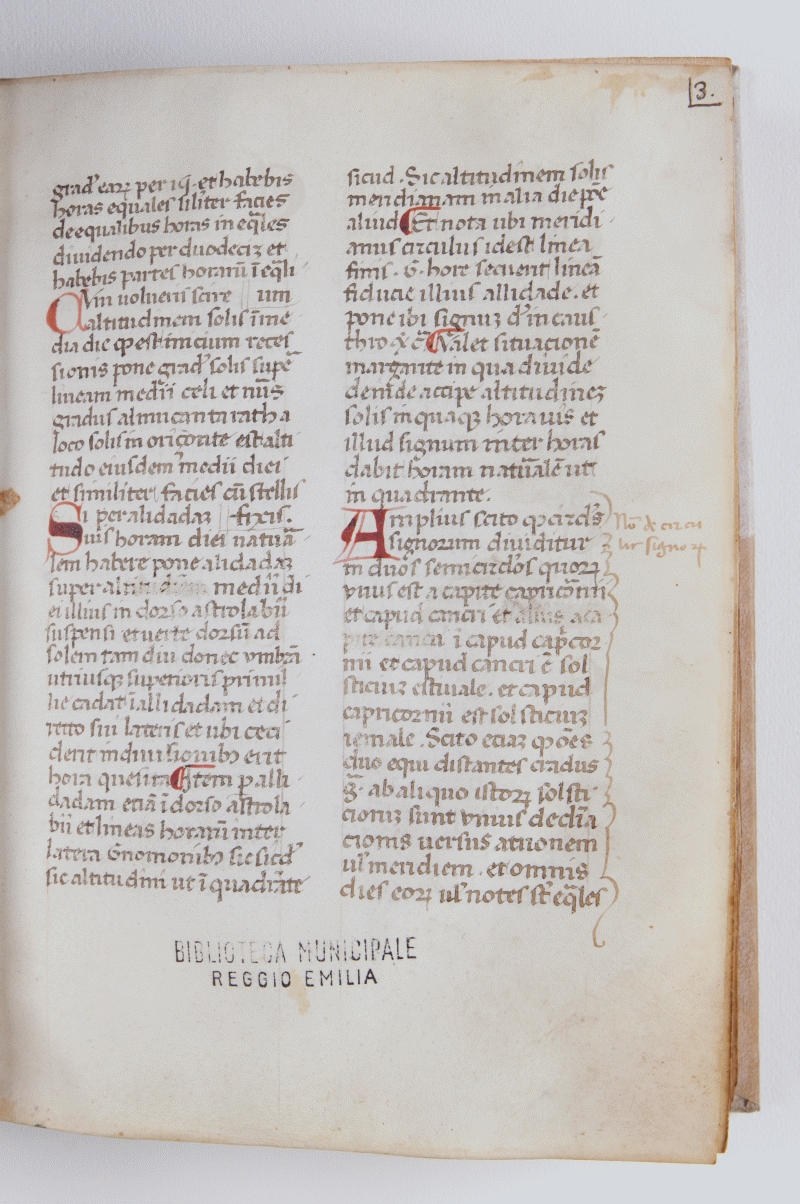 3.
grad' eaꝝ per iq̄. et habebis
horas equales siĺiter facies
de equalibus horas in eq̄les
diuidendo per duodeciȝ et
habebis partes horarū ī eq̄li
Cvm uolueris scire um
altitudinem solis ī me
dia die qp est inicium reces
sionis pone grad' solis supē
lineam medii celi et nūs
gradus almucantarath a
loco solis in oriçonte est alti
tudo eiusdem medii diei
et similiter facies cū stellis
Si per alidadaȝ fixis.
uis horam diei natuā
lem habere pone alidadaȝ
super medii di
ei illius in dorso astrolabii
suspensi et uerte dorsū ad
solem tam diu donec vmbrā
utriusqȝ superioris primil
lie cadat ī allidadam et di
recto sui lateris et ubi ceci
derit in diuisionibȝ erit
hora quesita Item p alli
dadam etiā ī dorso astrola
bii et lineas horarū inter
latera Gnomonibȝ sic sicd'
sic altitudini ut ī quadrāte
sicud. Sic altitudinem solis
meridianam in alia die p̄t̄e
aliud Et nota ubi meridi
anus circulus idest linea
finis. G. hore secuerit lineā
fiducie illius allidade. et
pone ibi signuȝ d' in caus
thro Valet situacionē
margarite in qua diuide
deīde accipe altitudineȝ
solis in quaqȝ hora uis et
illud signum inter horas
dabit horam natuālē ut
in quadrante.
Amplius scito qp circl's
signorum diuiditur
in duos semicircl'os quoꝝ
vnus est a capite capricornii
et capud cancri et alius a ca
pite cancri ī capud cap̄cor
nii et capud cancri ē sol
sticiuȝ estiuale. et capud
capricornii est solsticiuȝ
iemale. Scito etiaȝ qp ōēs
duo equi distantes cradus
ḡ. ab aliquo istoꝝ solsti
cionuȝ sunt vnius declīa
cionis uersus
ul' meridiem. et omnis
dies eoꝝ ul' notes st̄ eq̄les
Nō de circu
signoꝝ
BIBLIOTECA MUNICIPALE
REGGIO EMILIA